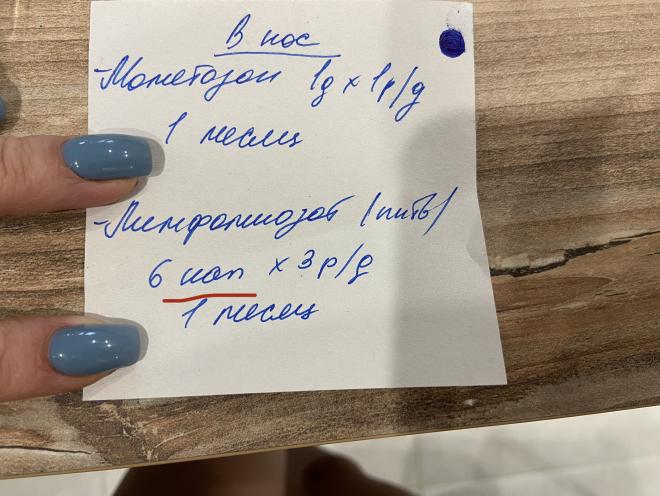 В нос
- Мометазон 1д х 1р/д
1 месяц
- Лимфомиозот (пить)
6 кап х 3 р/д
1 месяц